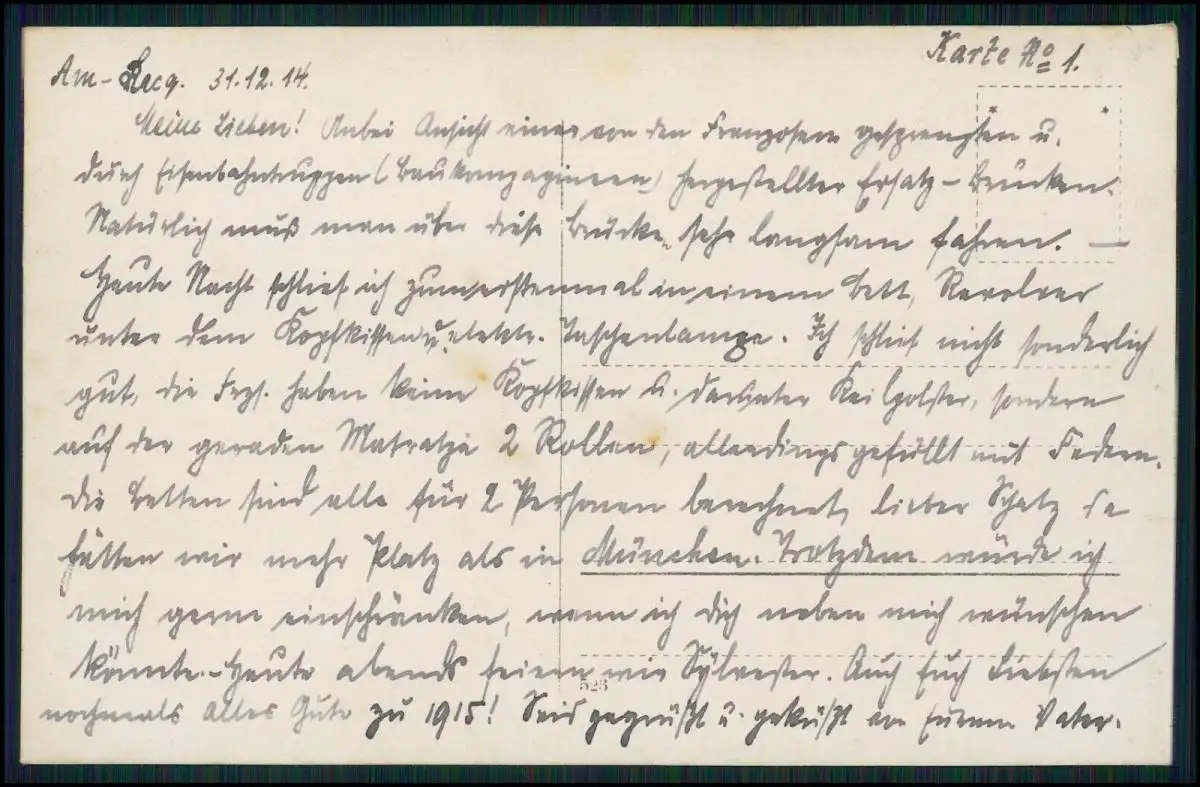 Karte No 1.
Am - 31.12.14.
Meine Lieben! Anbei Ansicht einer von den Franzosen gesprengten u.
durch Eisenbahntruppen (Baukompagnieen) hergestellter Ersatz-Brücken.
Natürlich muß man über diese Brücke sehr langsam fahren. —
Heute Nacht schlief ich zum erstenmal in einem Bett, Revolver
unter dem Kopfkissen u. elektr. Taschenlampe. Ich schlief nicht sonderlich
gut, die Frzs. haben keine Kopfkissen u. darunter Keilpolster, sondern
auf der geraden Matratze 2 Rollen, allerdings gefüllt mit Federn.
Die Betten sind alle für 2 Personen berechnet, lieber Schatz da
hätten wir mehr Platz als in München. Trotzdem würde ich
mich gerne einschränken, wenn ich Dich neben mich wünschen
könnte. - Heute abends feiern wir Sylvester. Auch Euch Liebsten
nochmals alles Gute zu 1915! Seid gegrüßt u. geküßt von Eurem Vater.
525